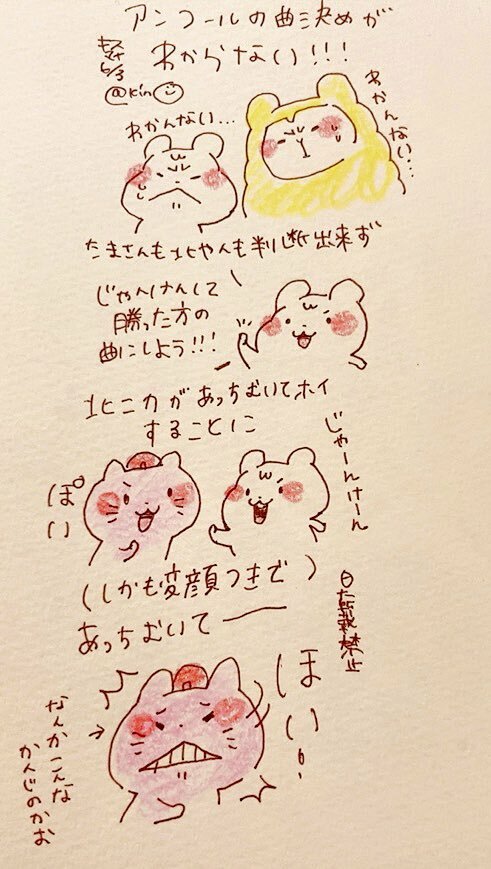 アンコールの曲決めが
わからない!!!
@kin
わかんない...
わかんない...
たまさんも北やんも判断出来ず
じゃんけんして
勝った方の
曲にしよう!!!
北ニカがあっちむいてホイ
することに
じゃーんけーん
ぽい
(しかも変顔つきで)
あっちむいてーー
ほい!
なんかこんな
かんじのかお